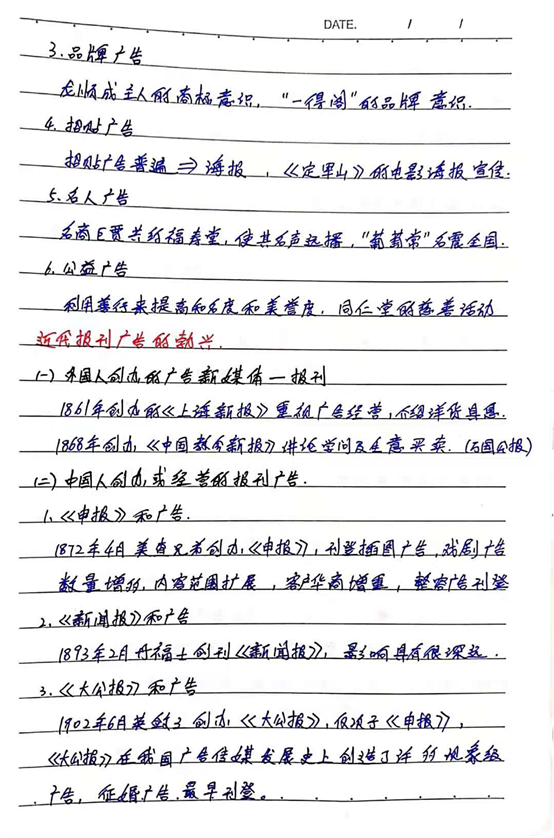 DATE. / /
3.品牌广告
龙顺成主人的商标意识,"一得阁"的品牌意识.
4.招贴广告
招贴广告普遍⇒海报,《定军山》的电影海报宣传.
5.名人广告
名商巨贾共行福寿堂,使其名声远播,"葡萄常"名震全国.
6.公益广告
利用善行来提高知名度和美誉度,同仁堂的慈善活动
近代报刊广告的勃兴.
(一)外国人创办的广告新媒体—报刊
1861年创办的《上海新报》重视广告经营,介绍洋货具愚.
1868年创办《中国教会新报》讲论学问及生意买卖.(万国公报)
(二)中国人创办或经营的报刊广告.
1.《申报》和广告.
1872年4月美查兄弟创办《申报》,刊登插图广告,戏剧广告
数量增多,内容范围扩展,客户华商增重,整容广告刊登
2.《新闻报》和广告
1893年2月丹福士创刊《新闻报》,影响具有很深远.
3.《大公报》和广告
1902年6月英敛之创办《大公报》,仅次于《申报》,
《大公报》在我国广告传媒发展史上创造了许多现象级
广告,征婚广告最早刊登。